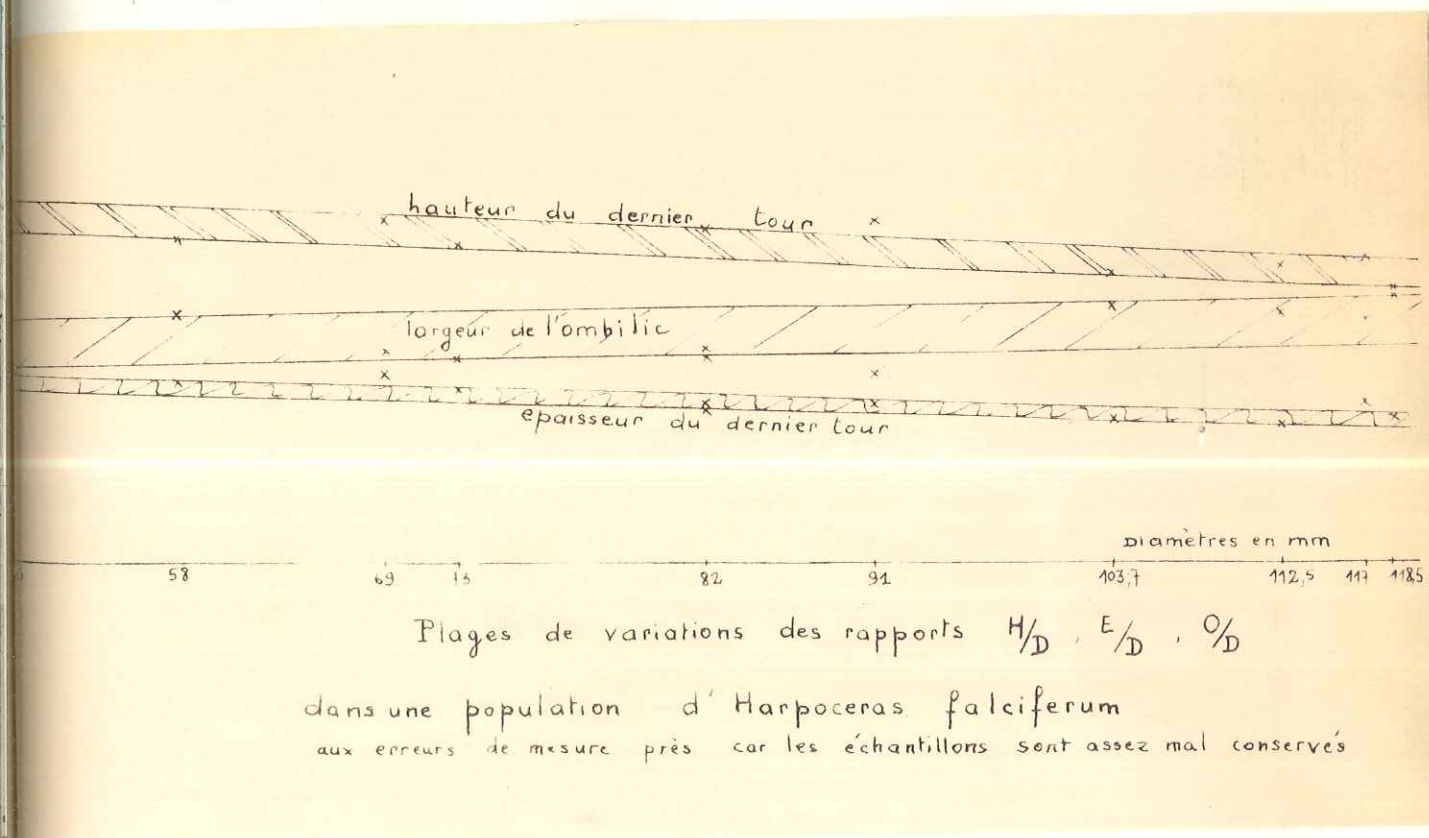 hauteur du dernier tour
largeur de l'ombilic
epaisseur du dernier tour
Diamètres en mm
58 69 73 82 91 103,7 112,5 117 118,5
Plages de variations des rapports H/D , E/D , O/D
dans une population d'Harpoceras falciferum
aux erreurs de mesure près car les échantillons sont assez mal conservés